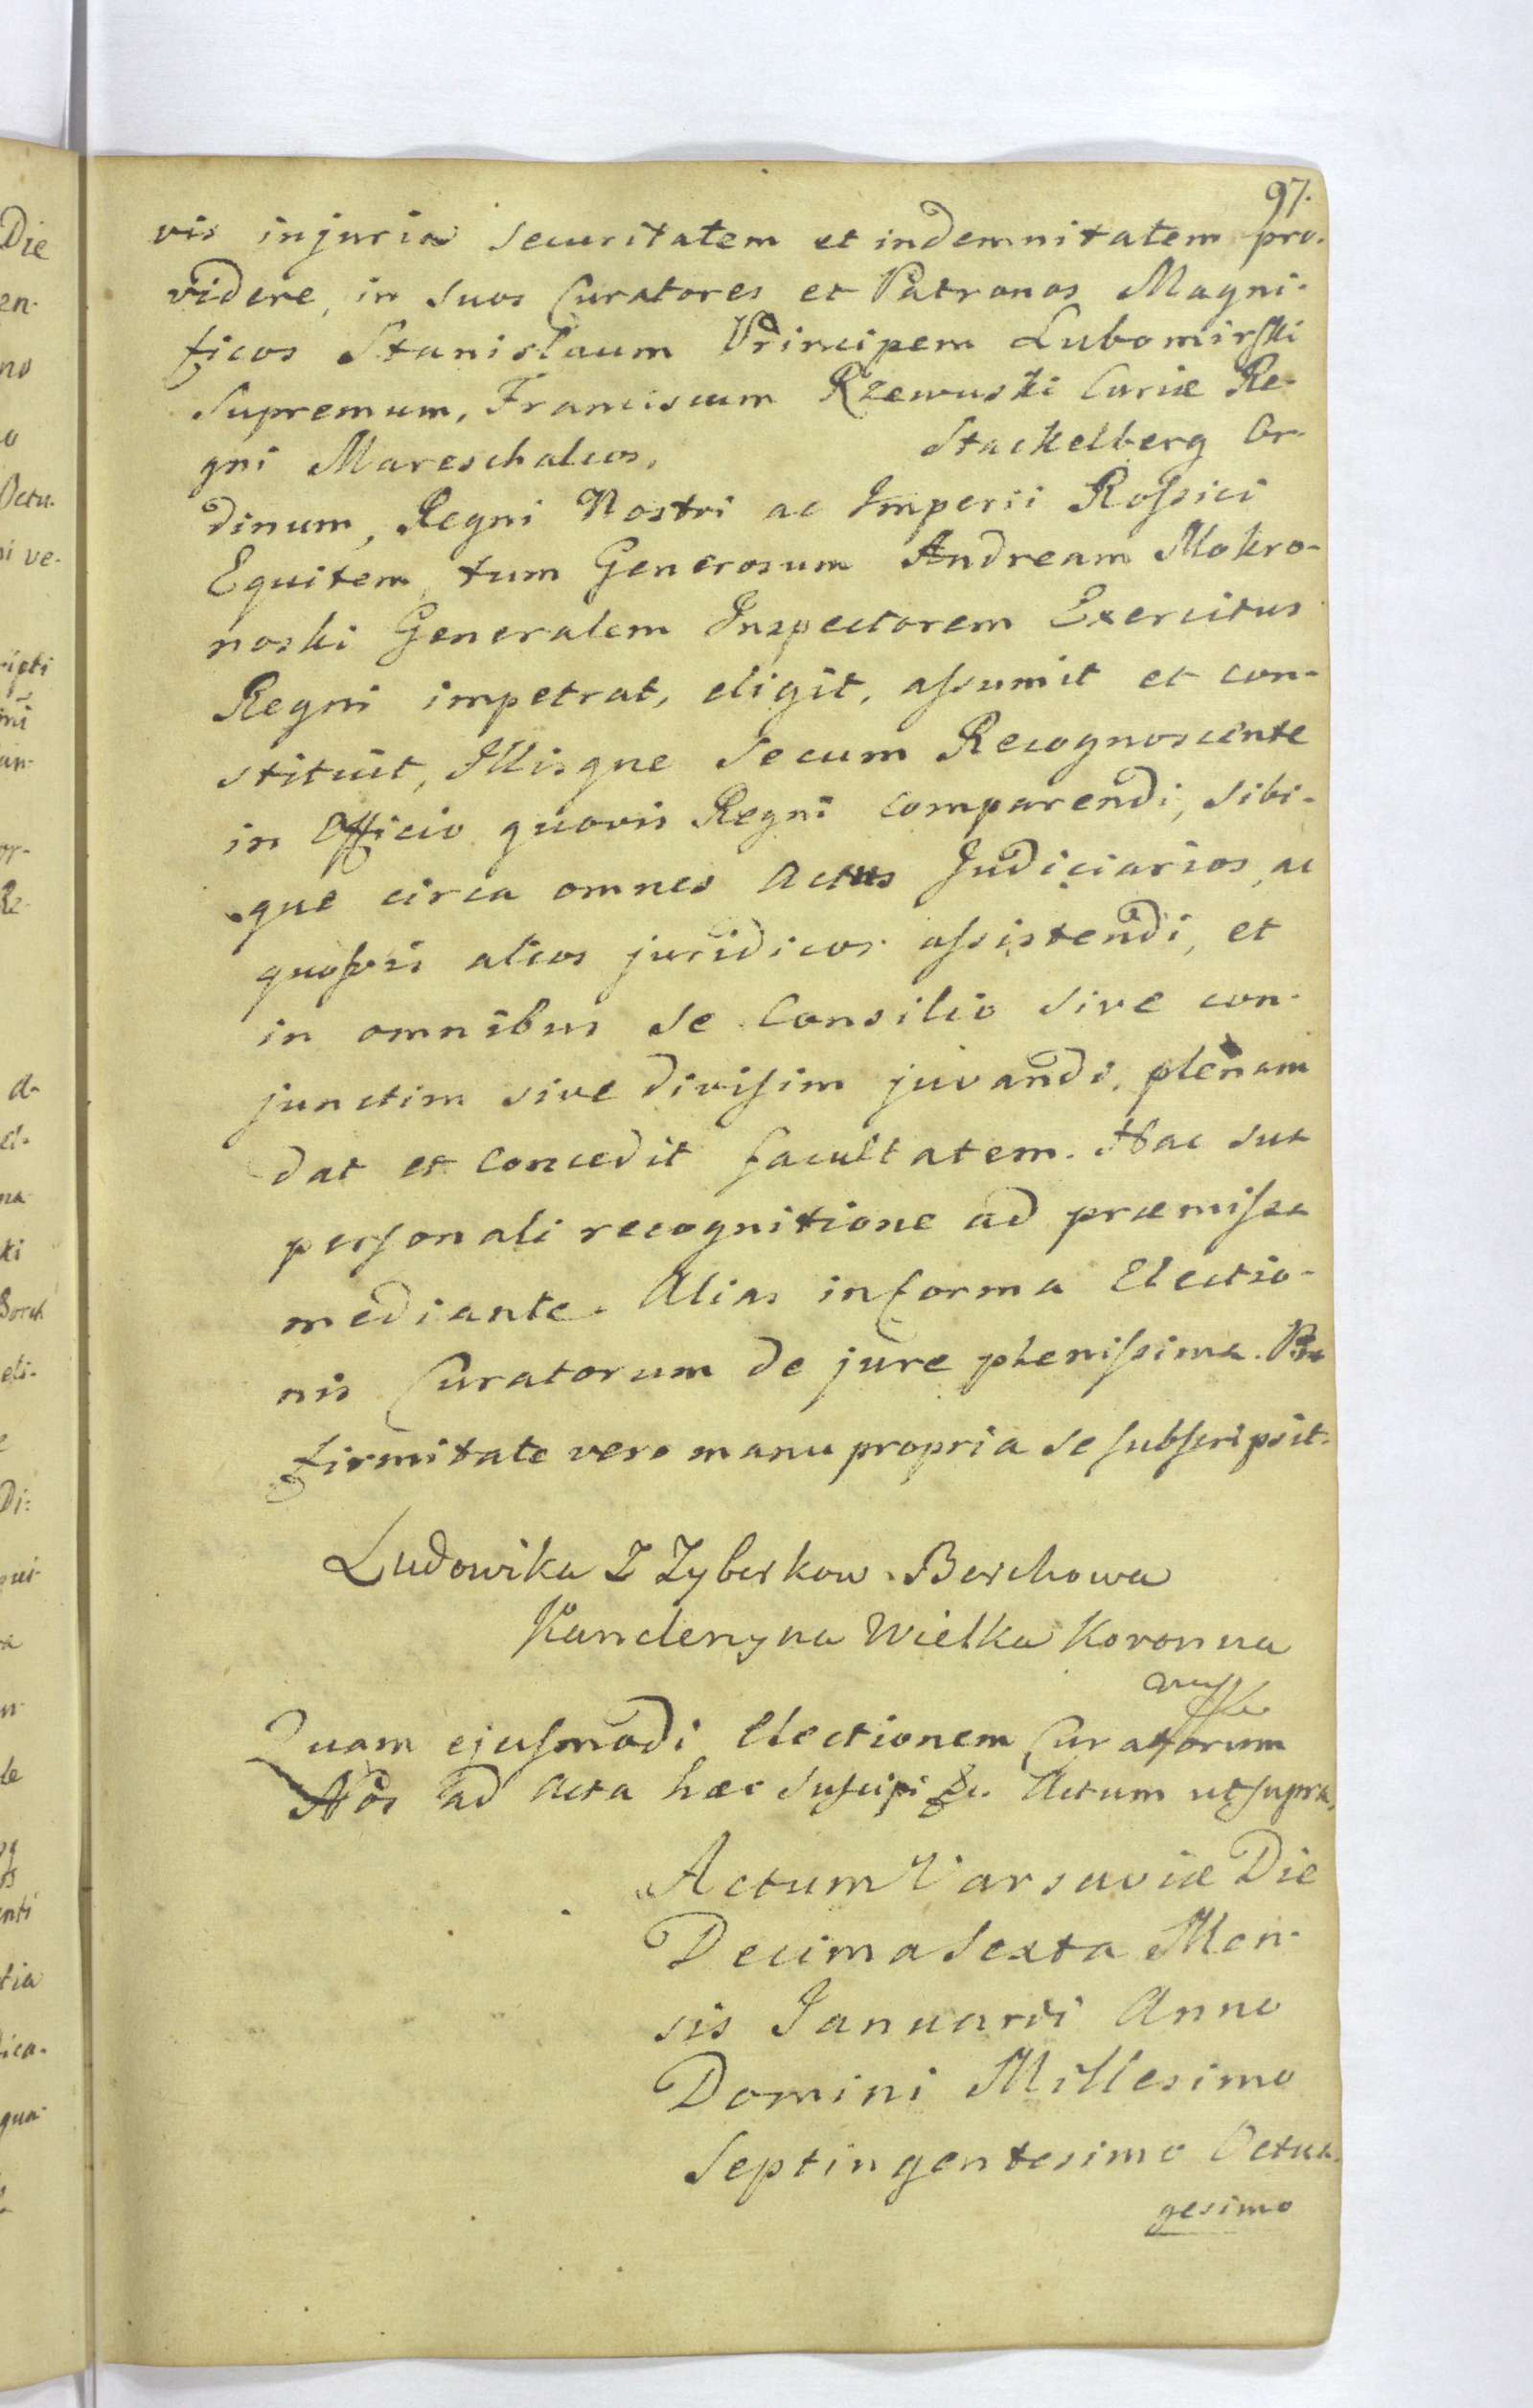 97.
vis injuria securitatem et indemnitatem pro-
videre, in suos Curatores et Patronos Magni-
ficos Stanislaum Principem Lubomirski
Supremum, Franciscum Rzewuski Curiæ Re-
gni Mareschalcos, Stackelberg Or-
dinum, Regni Nostri ac Imperii Rossici
Equitem, tum Generosum Andream Mokro-
noski Generalem Inspectorem Exercitus
Regni impetrat, eligit, assumit et con-
stituit, Illisque secum Recognoscente
in Officio quovis Regni comparendi, sibi-
que circa omnes Actus Judiciarios, ac
quosvis alios juridicos assistendi, et
in omnibus se Consilio sive con-
junctim sive divisim juvandi, plenam
dat et concedit facultatem. Hac sua
personali recognitione ad præmissa
mediante. Alias in forma Electio-
nis Curatorum de jure plenissima.
firmitate vero manu propria se subscripsit.
Ludowika Z Zyberkow Borchowa
Kanclerzyna Wielka Koronna
Quam ejusmodi Electionem Curatorum
Nos ad Acta hæc suscipi &c. Actum ut supra,
Actum Varsaviæ Die
Decima Sexta Men-
sis Januarii Anno
Domini Millesimo
Septingentesimo Octua-
gesimo
Die
en-
no
o
Octu-
ni ve-
ripti
an-
or-
Re-
el-
na
ki
Borch
eli-
e
Di=
qui-
le
enti
tia
dica-
qua-